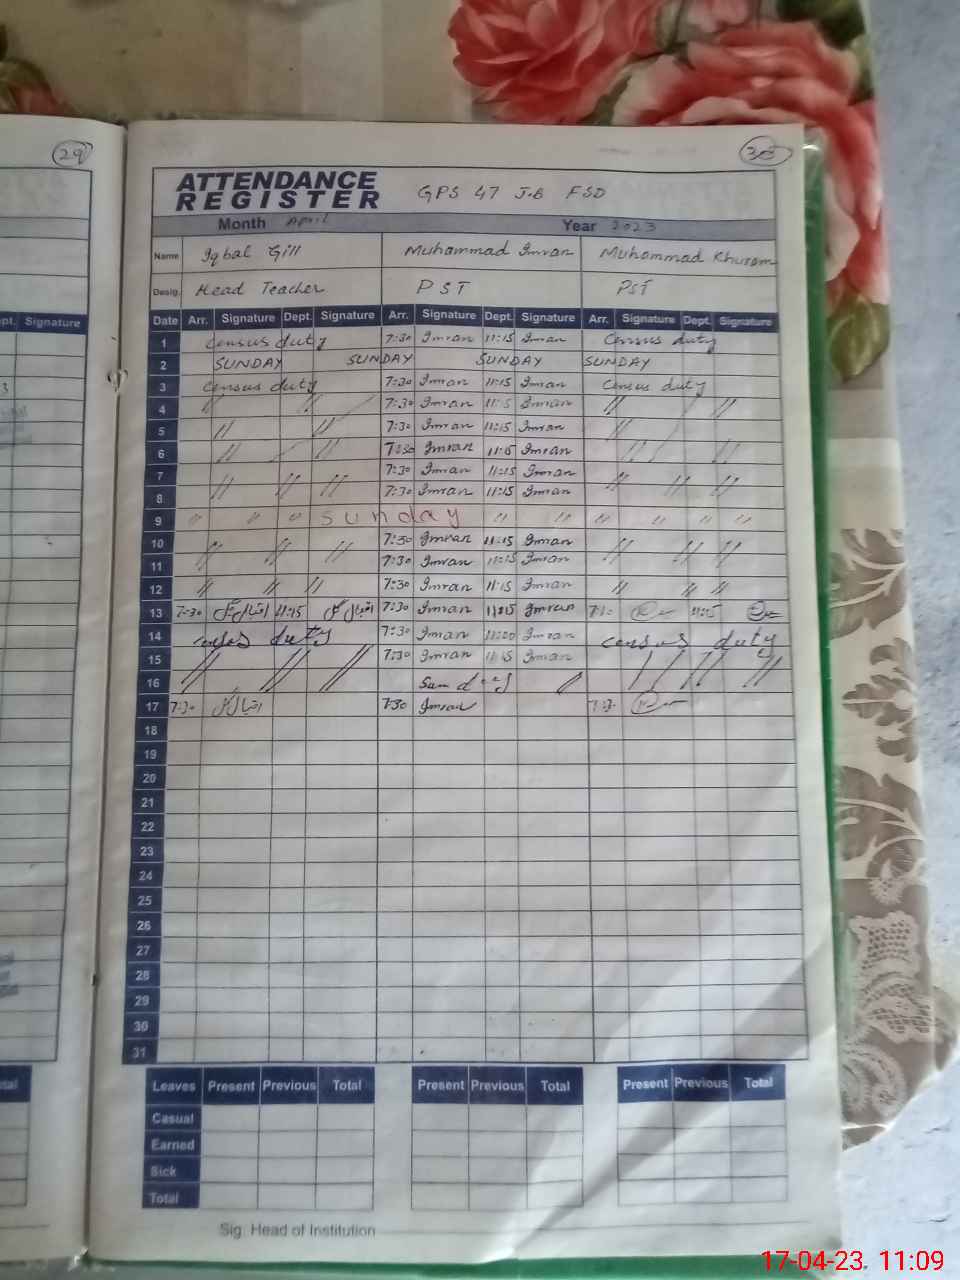 29
30
ATTENDANCE
REGISTER
GPS 47 J.B FSD
Month April Year 2023
Name Iqbal Gill Muhammad Imran Muhammad Khuram
Desig. Head Teacher PST PST
ept. Signature
Date Arr. Signature Dept. Signature Arr. Signature Dept. Signature Arr. Signature Dept. Signature
1 Census duty 7:30 Imran 11:15 Imran Census duty
2 SUNDAY SUNDAY SUNDAY SUNDAY
3 Census duty 7:30 Imran 11:15 Imran Census duty
4 // // 7:30 Imran 11:15 Imran // //
5 // // 7:30 Imran 11:15 Imran //
6 // // 7:30 Imran 11:15 Imran // //
7 // // // 7:30 Imran 11:15 Imran // // //
8 7:30 Imran 11:15 Imran
9 " " " Sunday " " " " " "
10 // // // 7:30 Imran 11:15 Imran // // //
11 7:30 Imran 11:15 Imran
12 // // // 7:30 Imran 11:15 Imran // // //
13 7:30 اقبال گل 11:15 اقبال گل 7:30 Imran 11:15 Imran 11:15
14 duty 7:30 Imran 11:00 Imran census duty
15 // // // 7:30 Imran 11:15 Imran // // //
16 //
17 7:30 اقبال گل 7:30 Imran
18
19
20
21
22
23
24
25
26
27
28
29
30
31
Leaves Present Previous Total Present Previous Total Present Previous Total
Casual
Earned
Sick
Total
Sig. Head of Institution
17-04-23 11:09